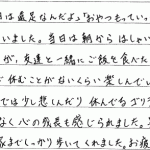 日は遠足なんだよ。おやつもってい
いました。当日は朝からはしゃい
が、友達と一緒にご飯を食べた
ど休むことがないくらい楽しんでい
では少し悲しんだり 休んでるゴリラ
なく心の成長も感じられました。
家までしっかり歩いてくれました。お疲